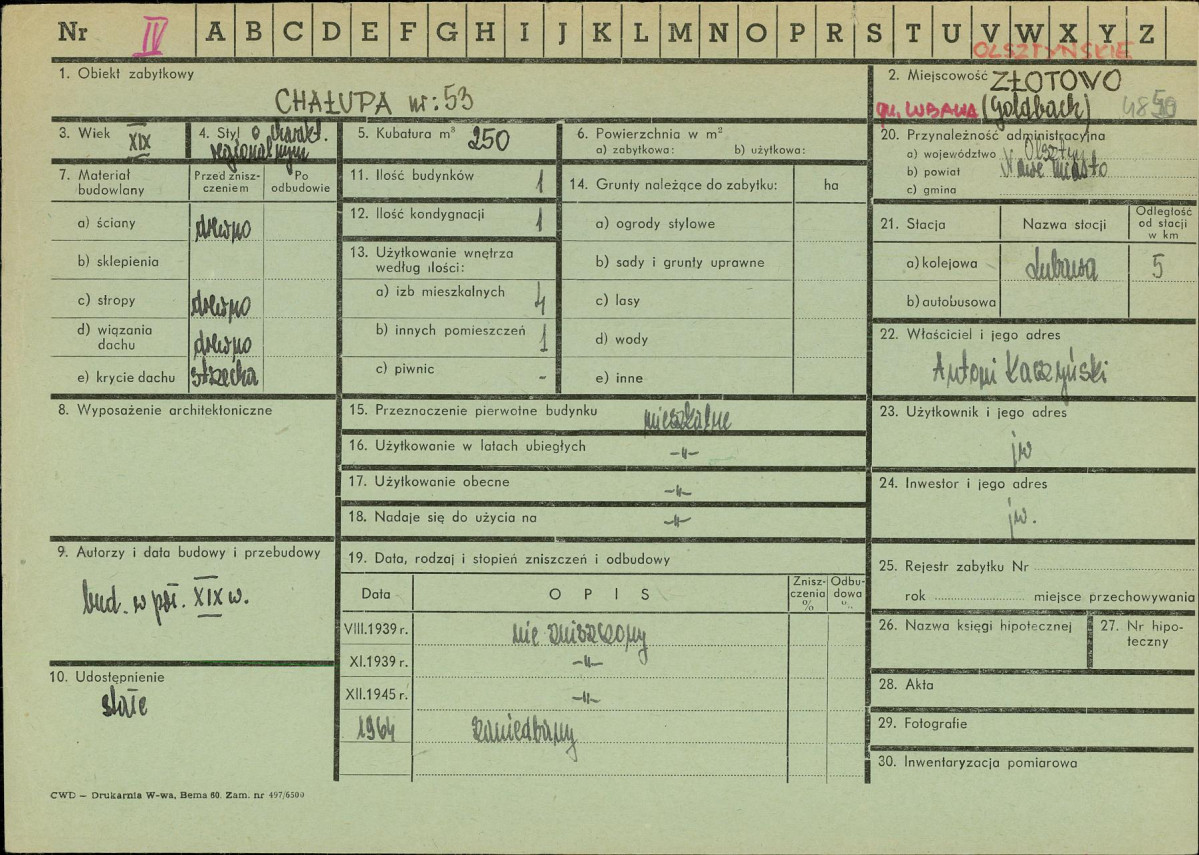 Nr IV A B C D E F G H I J K L M N O P R S T U V W X Y Z
OLSZTYŃSKIE
1. Obiekt zabytkowy
CHAŁUPA nr: 53
2. Miejscowość ZŁOTOWO
gm. LUBAWA (Goldbach)
3. Wiek XIX
4. Styl o charakt.
regionalnym
5. Kubatura m³ 250
6. Powierzchnia w m²
a) zabytkowa: b) użytkowa:
20. Przynależność administracyjna
a) województwo Olsztyn
b) powiat Nowe Miasto
c) gmina
7. Materiał
budowlany
Przed znisz-
czeniem
Po
odbudowie
a) ściany drewno
b) sklepienia
c) stropy drewno
d) wiązania
dachu drewno
e) krycie dachu strzecha
11. Ilość budynków 1
12. Ilość kondygnacji 1
13. Użytkowanie wnętrza
według ilości:
a) izb mieszkalnych 4
b) innych pomieszczeń 1
c) piwnic -
14. Grunty należące do zabytku: ha
a) ogrody stylowe
b) sady i grunty uprawne
c) lasy
d) wody
e) inne
21. Stacja Nazwa stacji
Odległość
od stacji
w km
a) kolejowa Lubawa 5
b) autobusowa
22. Właściciel i jego adres
Antoni Kaczyński
8. Wyposażenie architektoniczne
15. Przeznaczenie pierwotne budynku mieszkalne
16. Użytkowanie w latach ubiegłych -"-
17. Użytkowanie obecne -"-
18. Nadaje się do użycia na -"-
23. Użytkownik i jego adres
jw
24. Inwestor i jego adres
jw.
9. Autorzy i data budowy i przebudowy
bud. w poł. XIX w.
10. Udostępnienie
stałe
19. Data, rodzaj i stopień zniszczeń i odbudowy
Data OPIS
Znisz-
czenia
%
Odbu-
dowa
%
VIII.1939 r. nie zniszczony
XI.1939 r. -"-
XII.1945 r. -"-
1964 zaniedbany
25. Rejestr zabytku Nr
rok miejsce przechowywania
26. Nazwa księgi hipotecznej
27. Nr hipo-
teczny
28. Akta
29. Fotografie
30. Inwentaryzacja pomiarowa
CWD — Drukarnia W-wa, Bema 60. Zam. nr 497/6500